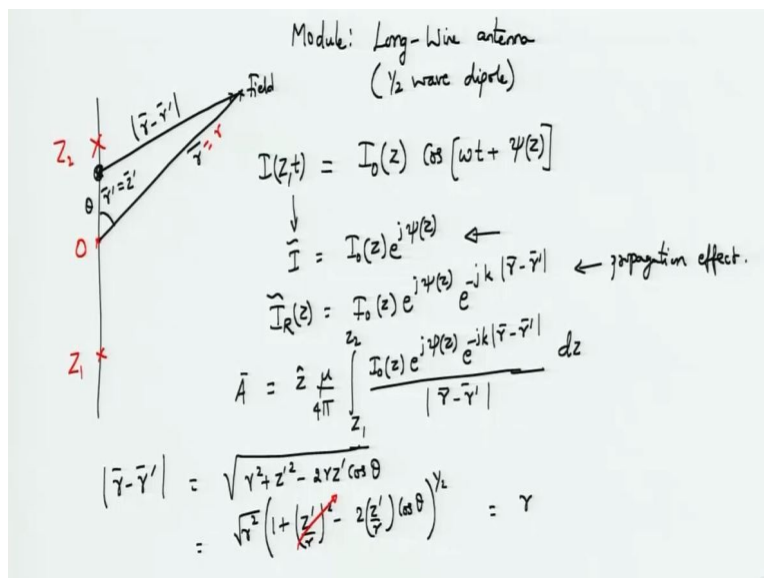 Module: Long-Wire antenna
(½ wave dipole)
Field
|r̄-r̄'|
r̄=r
Z₂
r̄'=z̄'
θ
O
Z₁
I(z,t) = I₀(z) Cos [ωt + ψ(z)]
Ĩ = I₀(z)e^{jψ(z)} ←
Ĩ_R(z) = I₀(z) e^{jψ(z)} e^{-jk|r̄-r̄'|} ← propagation effect.
Ā = ẑ μ/4π ∫_{Z₁}^{Z₂} I₀(z) e^{jψ(z)} e^{-jk|r̄-r̄'|} / |r̄-r̄'| dz
|r̄-r̄'| = √(r²+z'²-2rz'cosθ)
= √r² (1+(z'/r)²-2(z'/r)cosθ)^{1/2} = r